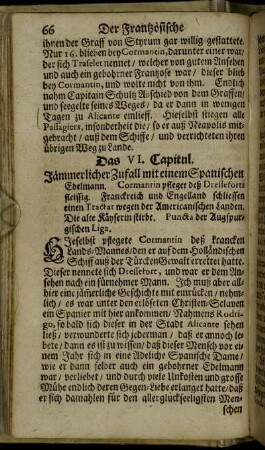 66 Der Frantzösische
ihnen der Graff von Styrum gar willig gestattete.
Nur 16. blieben bey Cormantin, darunter einer war/
der sich Trafelet nennet/ welcher von gutem Ansehen
und auch ein gebohrner Frantzose war/ dieser blieb
bey Cormantin, und wolte nicht von ihm. Endlich
nahm Capitain Schultz Abschied von dem Graffen/
und seegelte seines Weges/ da er dann in wenigen
Tagen zu Alicante einlieff. Hieselbst stiegen alle
Passagiers, insonderheit die/ so er auß Neapolis mit-
gebracht/ auß dem Schiffe/ und verrichteten ihren
übrigen Weg zu Lande.
Das VI. Capitul.
Jämmerlicher Zufall mit einem Spanischen
Edelmann. Cormantin pfleget deß Dreileforts
fleissig. Franckreich und Engelland schliessen
einen Tractat wegen der Americanischen Landen.
Die alte Käyserin stirbe. Puncta der Augspur-
gischen Liga.
HIeselbst pflegete Cormantin deß krancken
Lands-Mannes/ den er auf dem Holländischen
Schiff auß der Türcken Gewalt errettet hatte.
Dieser nennete sich Dreilefort, und war er dem An-
sehen nach ein fürnehmer Mann. Ich muß aber all-
hier eine jämerliche Geschichte mit einrücken/ nehm-
lich/ es war unter den erlöseten Christen-Sclaven
ein Spanier mit hier ankommen/ Nahmens Rodri-
go, so bald sich dieser in der Stadt Alicante sehen
ließ/ verwunderte sich jederman/ daß er annoch le-
bete/ dann es ist zu wissen/ daß dieser Mensch vor ei-
nem Jahr sich in eine Adeliche Spanische Dame/
wie er dann selber auch ein gebohrner Edelmann
war/ verliebet/ und durch viele Unkosten und grosse
Mühe endlich deren Gegen-Liebe erlanget hatte/ daß
er sich damahlen für den allerglückseeligsten Men-
schen